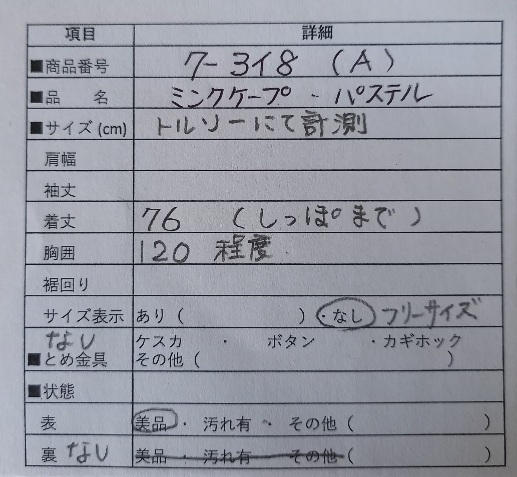 項目 詳細
■商品番号 7-318 (A)
■品 名 ミンクケープ・パステル
■サイズ(cm) トルソーにて計測
肩幅
袖丈
着丈 76 (しっぽまで)
胸囲 120 程度
裾回り
サイズ表示 あり( )・なし フリーサイズ
なし ケスカ ・ ボタン ・カギホック
■とめ金具 その他( )
■状態
表 美品・ 汚れ有 ・ その他( )
裏 なし 美品・ 汚れ有 その他( )